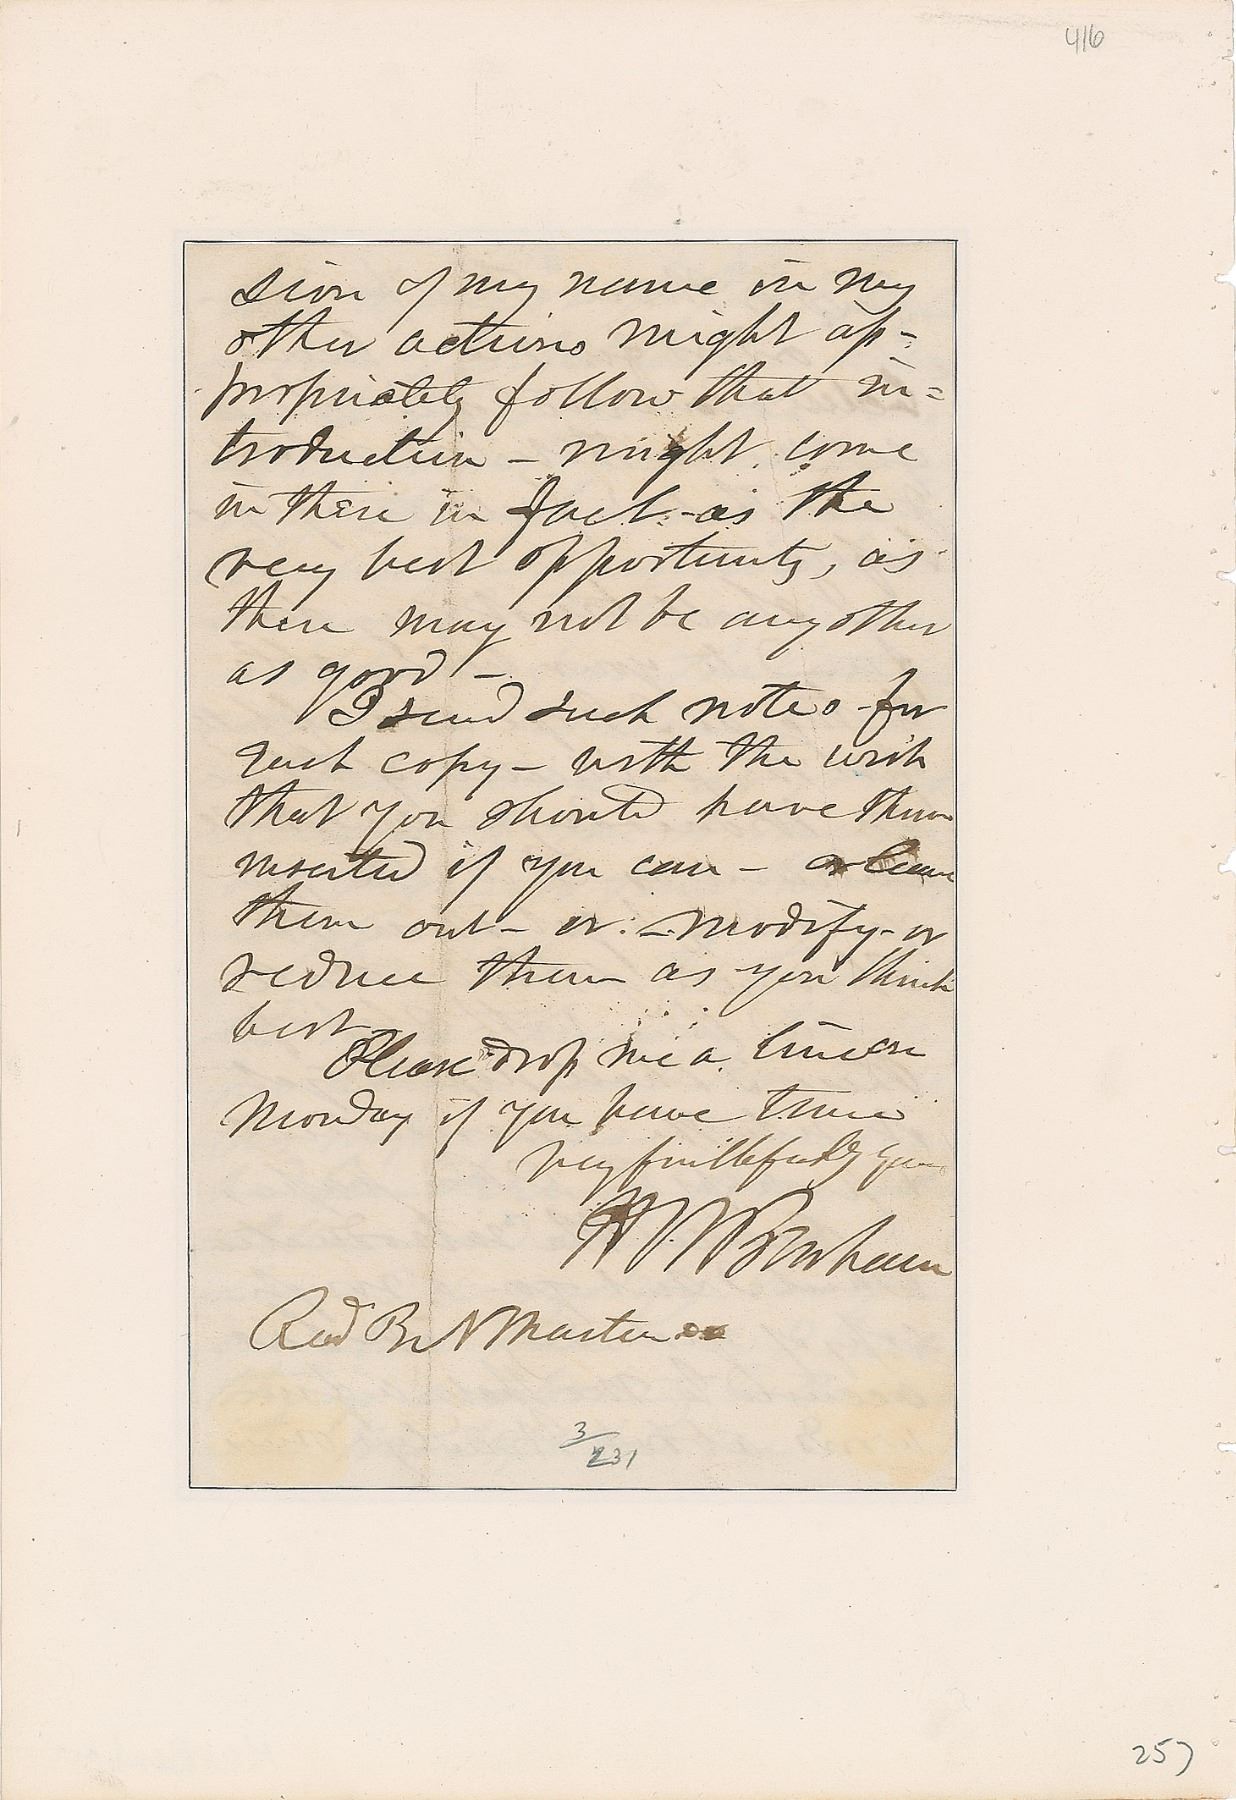 416
sion of my name in my
other actions might ap-
propriately follow that in=
troduction - might come
in there in fact - as the
very best opportunity, as
there may not be any other
as good -
I send such notes for
each copy - with the wish
that you should have them
inserted if you can - or leave
them out - or - modify - or
reduce them as you think
best -
Please drop me a line on
Monday if you have time
very faithfully yours
H W Benham
Benj N Martin
3/231
257